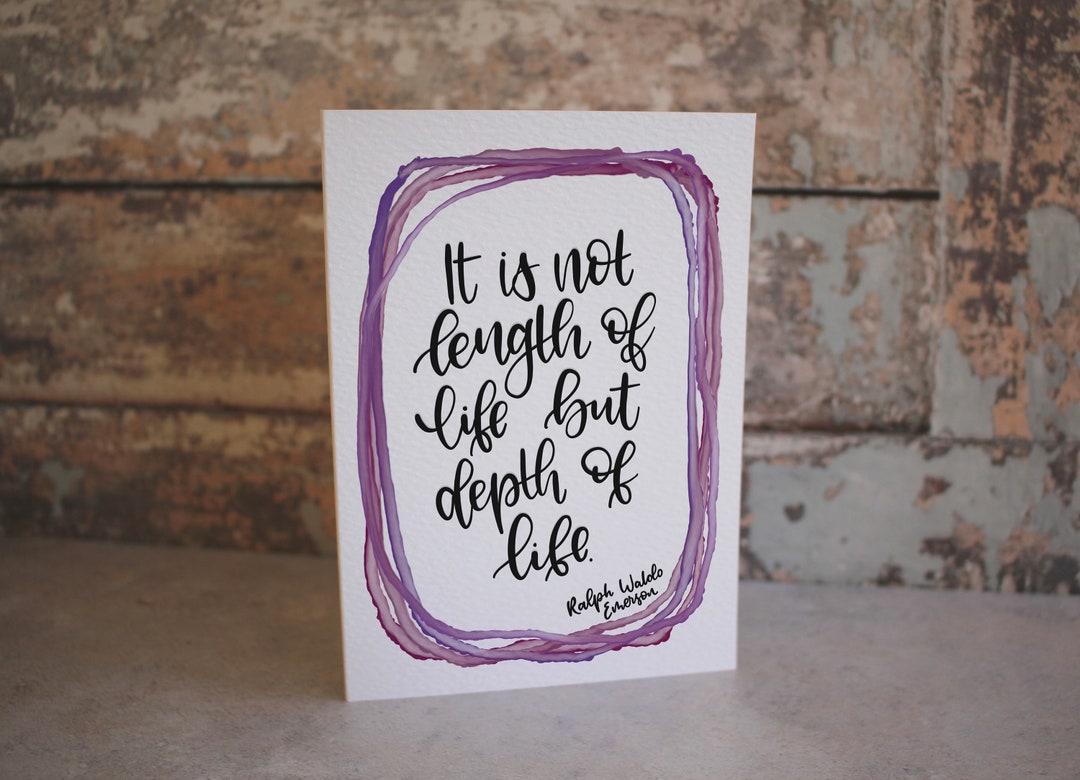 It is not
length of
life but
depth of
life.
Ralph Waldo
Emerson